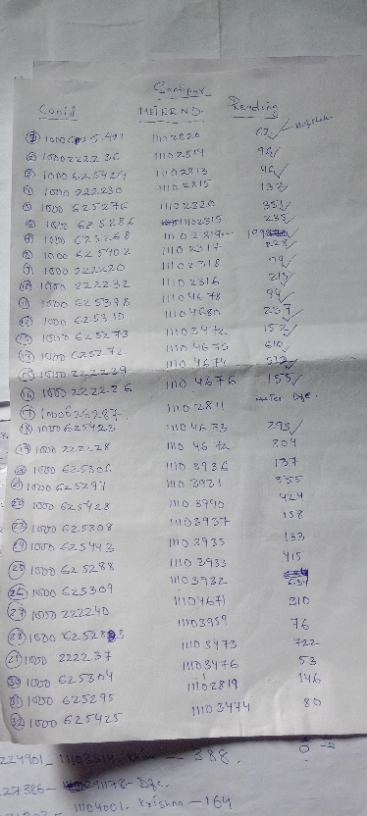 Conid METERNO. Reading
① 1000 625491 11102820
② 1000222236 11102514 96
③ 1000 625424 11102813 46
④ 1000 222230 11102815 132
⑤ 1000 625276 11102320 353
⑥ 1000 625286 11102315 235
⑦ 1000 625268 11102819
⑧ 1000 625402 11102317 228
⑨ 1000 222220 11102318
⑩ 1000 222232 11102316 213
⑪ 1000 625398 11104678 94
⑫ 1000 625390 11104680 237
⑬ 1000 625273 152
⑭ 1000 625272 11104675 610
⑮ 1000 222239 11104674
⑯ 1000 222226 11104676 155
⑰ 11102811 meter Dfc.
⑱ 1000 625423 11104673 295
⑲ 1000 222228 804
⑳ 1000 625306 11103936 137
㉑ 1000 625297 11103931 355
㉒ 1000 625428 11103940 424
㉓ 1000 625308 11103937 158
㉔ 1000 625443 11103935 133
㉕ 1000 625288 11103933 415
㉖ 1000 625309 11103932
㉗ 1000 222240 11104671 310
㉘ 1000 11103959 76
㉙ 1000 222237 11103473 722
㉚ 1000 625304 11103476 53
㉛ 1000 625295 11102819 146
㉜ 1000 625425 11103474 80
224901 - 388.
227386- 291178- Dfc.
11104001. Krishna - 164